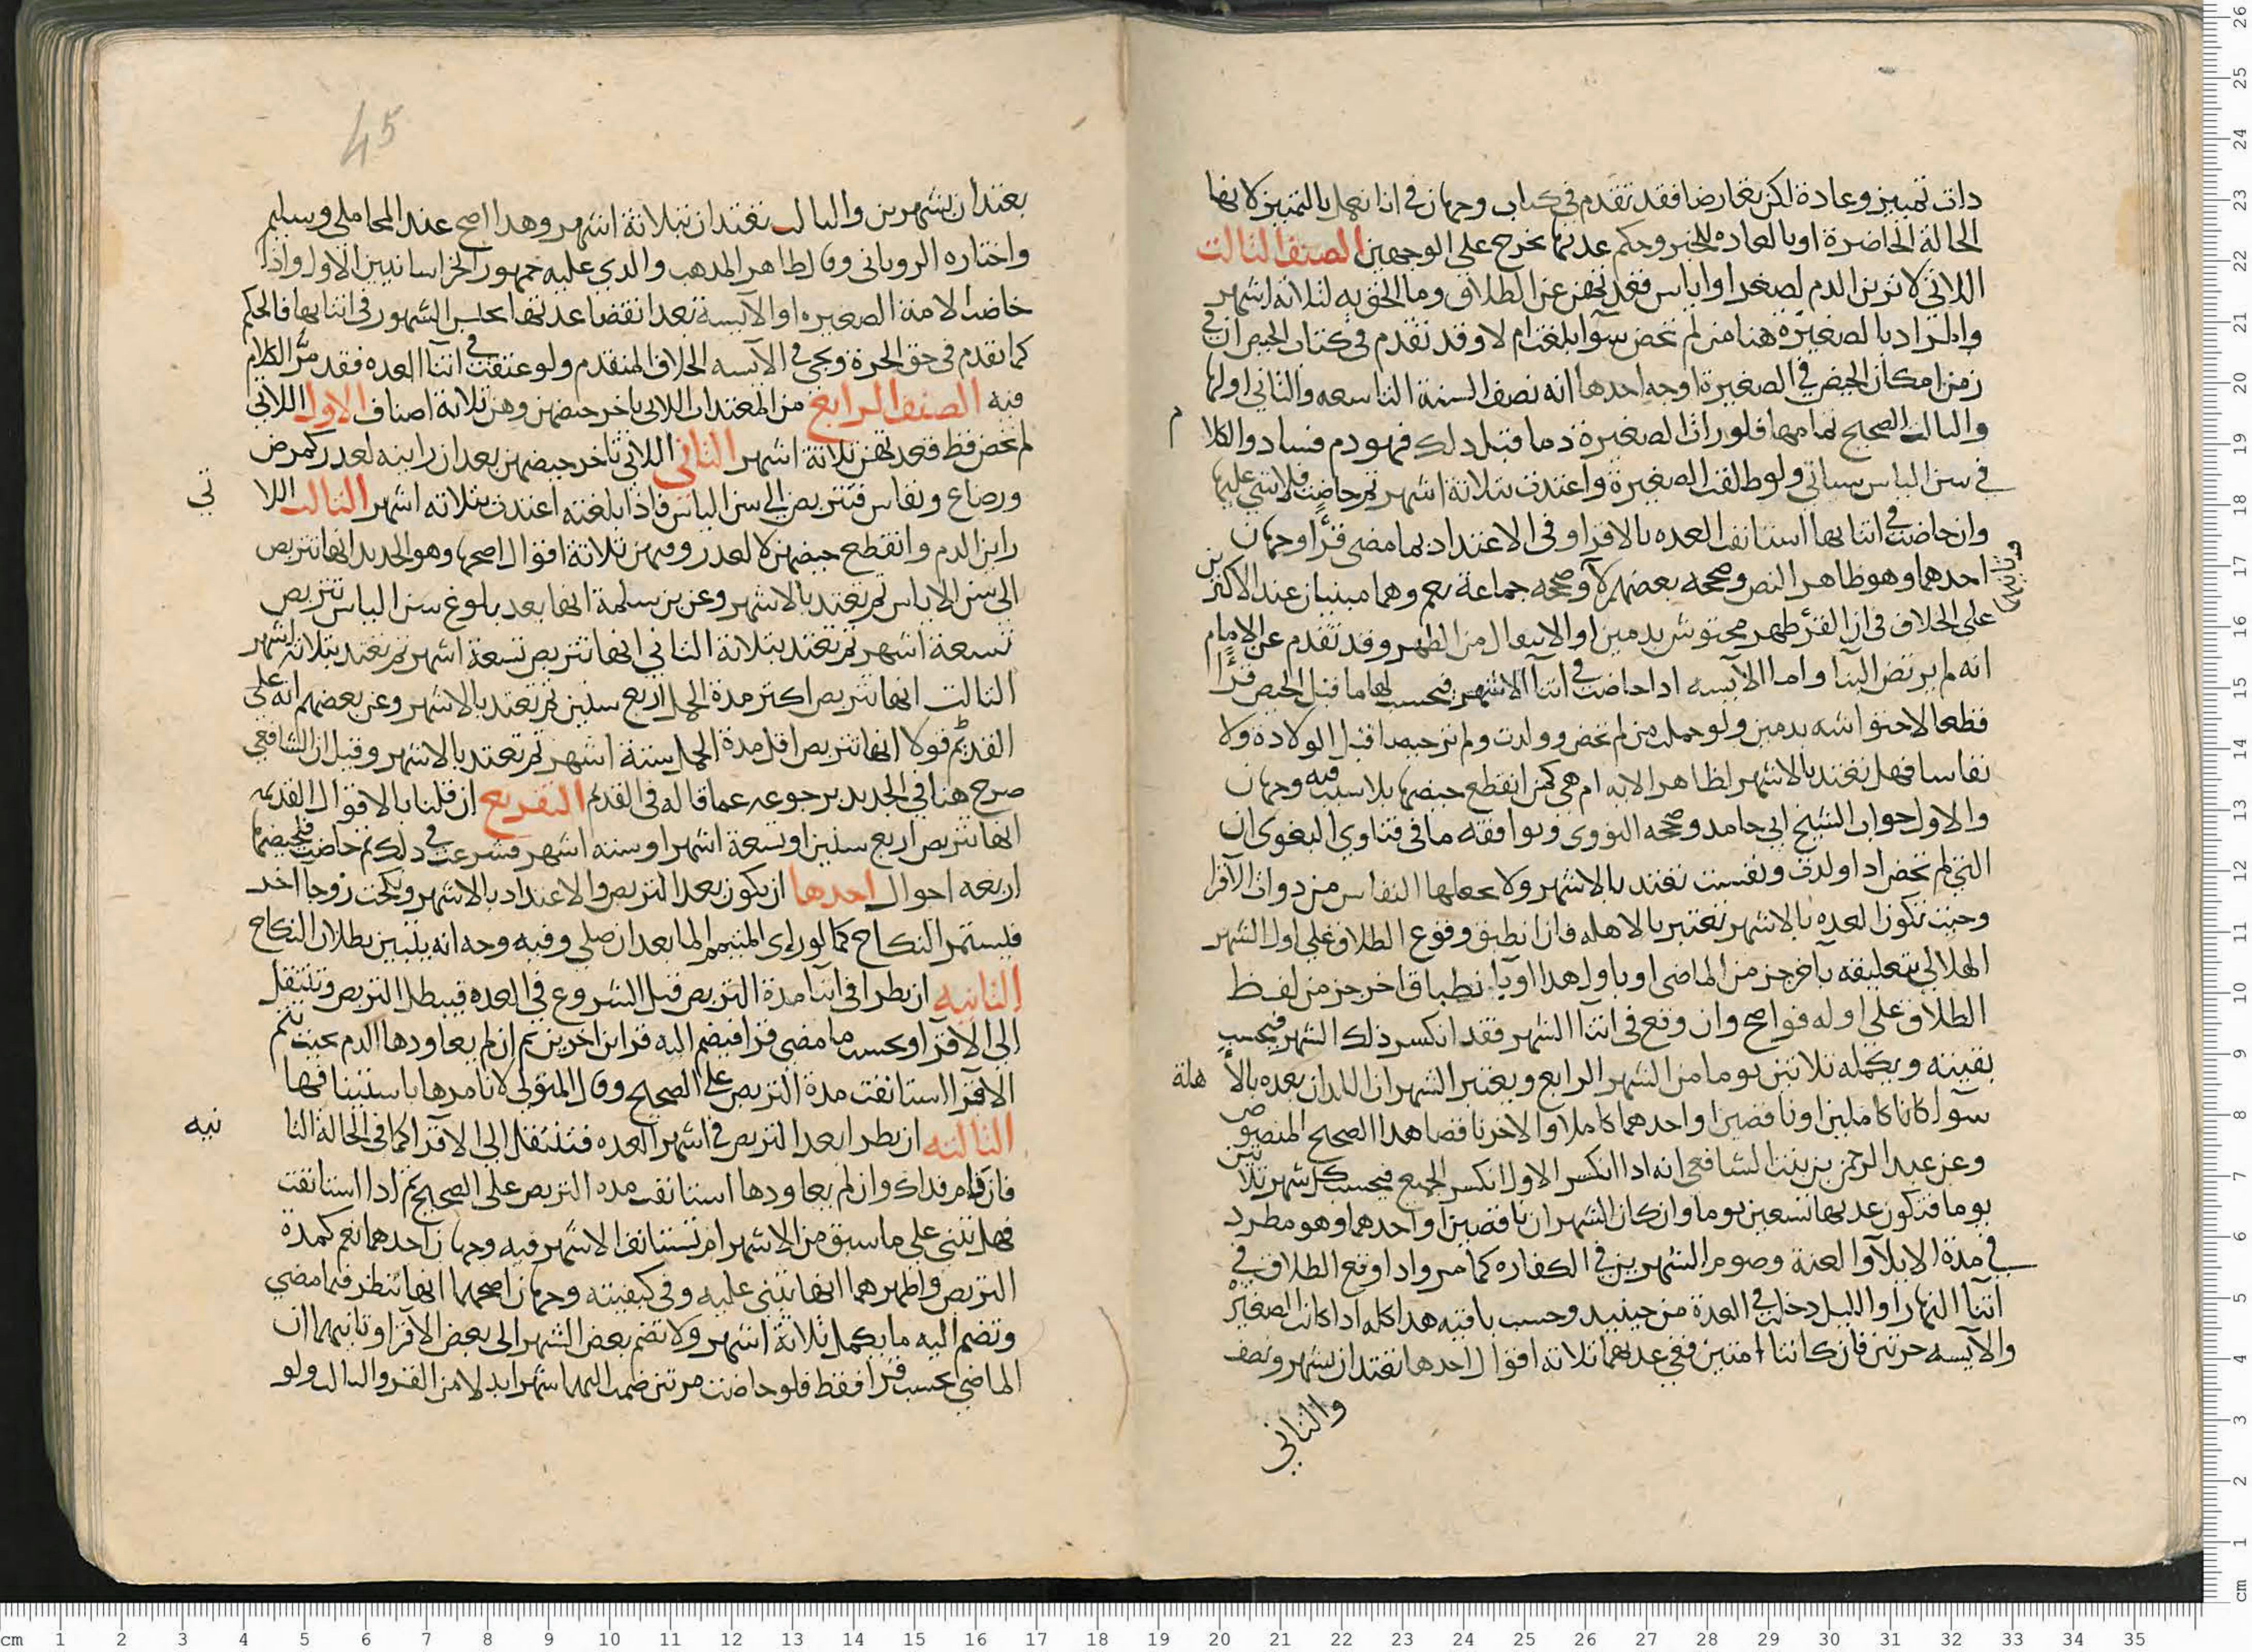 ذات تمييز وعادة لكن تعارضا فقد تقدم في كتاب وجهان في انا نعمل بالتمييز لانها
الحالة الحاضرة او بالعاده للخبر وحكم عدتها تخرج على الوجهين الصنف الثالث
اللاتي لا ترين الدم لصغر او اياس فعدتهن عن الطلاق وما الحق به لثلاثه اشهر
والمراد بالصغيرة هنا من لم تحض سوآ بلغت ام لا وقد تقدم في كتاب الحيض ان في
زمن امكان الحيض في الصغيرة اوجه احدها انه نصف السنة التاسعه والثاني اولها
والثالث الصحيح تمامها فلو رات الصغيرة دما قبل ذلك فهو دم فساد والكلا م
في سن الياس سياتي ولو طلقت الصغيرة واعتدت بثلاثة اشهر ثم حاضت فلا شي عليها
وان حاضت في اثنايها استانفت العده بالاقرا وفي الاعتداد بما مضى قرًا وجهان
احدهما وهو ظاهر النص وصححه بعضهم لا وصححه جماعة نعم وهما مبنيان عند الاكثرين
على الخلاف في ان القرء طهر محتوش بدمين او الانتقال من الطهر وقد تقدم عن الامام
انه لم يرتض البنا واما الآيسه اذا حاضت في اثنا الاشهر فيحسب لها ما قبل الحيض قرًا
قطعا لاحتواشه بدمين ولو حملت من لم تحض وولدت ولم تر حيضا قبل الولادة ولا
نفاسا فهل تعتد بالاشهر لظاهر الايه ام هي كمن انقطع حيضها بلا سبب فيه وجهان
والاول جواب الشيخ ابي حامد وصححه النووي ويوافقه ما في فتاوي البغوي ان
التي لم تحض اذا ولدت ونفست تعتد بالاشهر ولا يجعلها النفاس من ذوات الاقرا
وحيث تكون العده بالاشهر تعتبر بالاهله فان انطبق وقوع الطلاق على اول الشهر
الهلالي بتعليقه بآخر جز من الماضي او باول هذا او بانطباق اخر جز من لفظ
الطلاق على اوله فواضح وان وقع في اثنا الشهر فقد انكسر ذلك الشهر فيحسب
بقيته ويكمله ثلاثين يوما من الشهر الرابع ويعتبر الشهران اللذان بعده بالأ هلة
سوآ كانا كاملين او ناقصين او احدهما كاملا والاخر ناقصا هذا الصحيح المنصوص
وعن عبد الرحمن بن بنت الشافعي انه اذا انكسر الاول انكسر الجميع فيحسب كل شهر ثلاثين
يوما فتكون عدتها تسعين يوما وان كان الشهران ناقصين او احدهما وهو مطرد
في مدة الايلآ والعنة وصوم الشهرين في الكفاره كما مر واذا وقع الطلاق في
اثنآ النهار او الليل دخلت في العدة من حينيد وحسب باقيه هذا كله اذا كانت الصغيرة
والآيسه حرتين فان كانتا امتين ففي عدتهما ثلاثه اقوال احدها تعتدان بشهر ونصف
والثاني
45
يعتدان بشهرين والثالث تعتدان بثلاثة اشهر وهذا اصح عند المحاملي وسليم
واختاره الروياني وقال ظاهر المذهب والذي عليه جمهور الخراسانيين الاول واذا
حاضت الامة الصغيره او الآيسة بعد انقضا عدتها بحسب الشهور في اثنايها فالحكم
كما تقدم في حق الحرة ويجي في الآيسه الخلاف المتقدم ولو عتقت في اثنآ العده فقد مرّ الكلام
فيه الصنف الرابع من المعتدات اللاتي تاخر حيضهن وهن ثلاثة اصناف الاول اللاتي
لم تحض قط فعدتهن ثلاثة اشهر الثاني اللاتي تأخر حيضهن بعد ان راينه لعذر كمرض
ورضاع ونفاس فتتربص الى سن الياس فاذا بلغته اعتدت بثلاثه اشهر الثالث اللا تي
راين الدم وانقطع حيضهن لا لعذر وفيهن ثلاثة اقوال اصحها وهو الجديد انها تتربص
الى سن الاياس ثم تعتد بالاشهر وعن بن سلمة انها بعد بلوغ سن الياس تتربص
تسعة اشهر ثم تعتد بثلاثة الثاني انها تتربص تسعة اشهر ثم تعتد بثلاثه اشهر
الثالث انها تتربص اكثر مدة الحمل اربع سنين ثم تعتد بالاشهر وعن بعضهم انه على
القديم قولا انها تتربص اقل مدة الحمل ستة اشهر ثم تعتد بالاشهر وقيل ان الشافعي
صرح هنا في الجديد برجوعه عما قاله في القديم التفريع ان قلنا بالاقوال القديمه
انها تتربص اربع سنين او تسعة اشهر او سته اشهر فشرعت في ذلك ثم حاضت فلحيضها
اربعه احوال احدها ان يكون بعد التربص والاعتداد بالاشهر ونكحت زوجا اخر
فيستمر النكاح كما لو راى المتيمم الما بعد ان صلى وفيه وجه انه يتبين بطلان النكاح
الثانيه ان يطرا في اثنآ مدة التربص قبل الشروع في العده فيبطل التربص وتنتقل
الى الاقرا ويحسب ما مضى قرا فيضم اليه قراين اخرين ثم ان لم يعاودها الدم بحيث تتم
الاقرا استانفت مدة التربص على الصحيح وقال المتولي لا نامرها باستينافها
الثالثه ان يطرا بعد التربص في اشهر العده فتنتقل الى الاقرا كما في الحالة الثا نيه
فان فام فذاك وان لم يعاودها استانفت مده التربص على الصحيح ثم اذا استانفت
فهل تبني على ما سبق من الاشهر ام تستانف الاشهر فيه وجهان احدهما نعم كمدة
التربص واظهرهما انها تبني عليه وفي كيفيته وجهان اصحهما انها تنظر فيما مضى
وتضم اليه ما يكمل ثلاثة اشهر ولا تضم بعض الشهر الى بعض الاقرا وثانيهما ان
الماضي يحسب قرا فقط فلو حاضت مرتين ضمت اليهما شهرا بدلا من القرو الثالث ولو